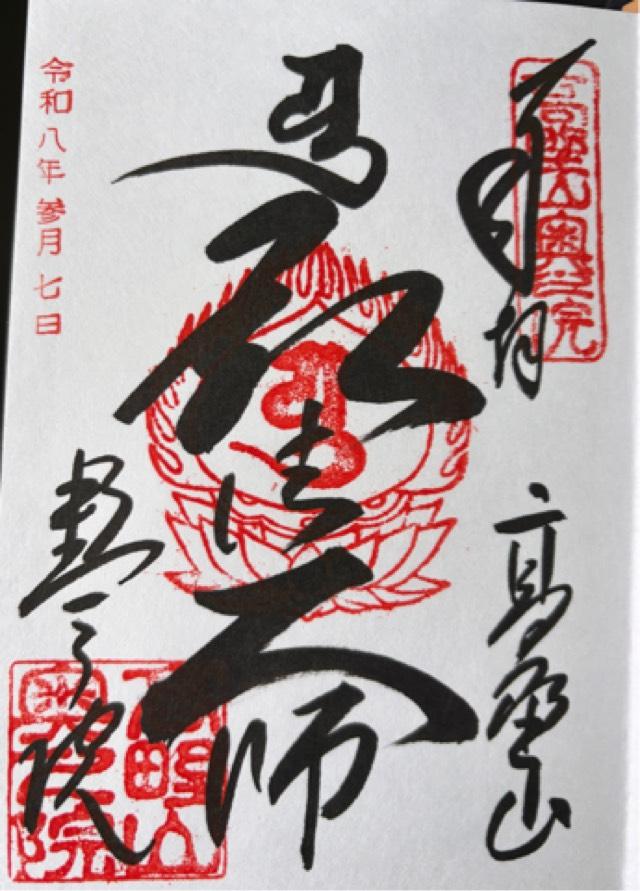 奉拝
高野山
高野山奥之院
弘法大師
令和八年参月七日
奥之院
高野山
奥之院